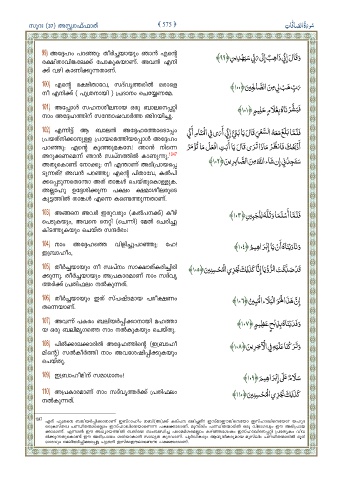 സൂറ: (37) അസ്സ്വാഫ്ഫാത്ത്
﴾ 575 ﴿
سُورَةُ الصَّافَّاتِ
99) അദ്ദേഹം പറഞ്ഞു: തീർച്ചയായും ഞാൻ എന്റെ
രക്ഷിതാവിങ്കലേക്ക് പോകുകയാണ്. അവൻ എനി
ക്ക് വഴി കാണിക്കുന്നതാണ്.
وَقَالَ إِنِّي ذَاهِبٌ إِلَى رَبِّي سَيَهْدِينِ ﴿٩٩﴾
100) എന്റെ രക്ഷിതാവേ, സദ്‌വൃത്തരിൽ ഒരാളെ
നീ എനിക്ക് (പുത്രനായി) പ്രദാനം ചെയ്യേണമേ.
رَبِّ هَبْ لِي مِنَ الصَّالِحِينَ ﴿١٠٠﴾
101) അപ്പോൾ സഹനശീലനായ ഒരു ബാലനെപ്പറ്റി
നാം അദ്ദേഹത്തിന് സന്തോഷവാർത്ത അറിയിച്ചു.
فَبَشَّرْنَاهُ بِغُلَامٍ حَلِيمٍ ﴿١٠١﴾
102) എന്നിട്ട് ആ ബാലൻ അദ്ദേഹത്തോടൊപ്പം
പ്രയത്നിക്കാനുള്ള പ്രായമെത്തിയപ്പോൾ അദ്ദേഹം
പറഞ്ഞു: എന്റെ കുഞ്ഞുമകനേ! ഞാൻ നിന്നെ
അറുക്കണമെന്ന് ഞാൻ സ്വപ്നത്തിൽ കാണുന്നു.
അതുകൊണ്ട് നോക്കൂ: നീ എന്താണ് അഭിപ്രായപ്പെ
ടുന്നത്? അവൻ പറഞ്ഞു: എന്റെ പിതാവേ, കൽപി
ക്കപ്പെടുന്നതെന്തോ അത് താങ്കൾ ചെയ്തുകൊള്ളുക.
അല്ലാഹു ഉദ്ദേശിക്കുന്ന പക്ഷം ക്ഷമാശീലരുടെ
കൂട്ടത്തിൽ താങ്കൾ എന്നെ കണ്ടെത്തുന്നതാണ്.
فَلَمَّا بَلَغَ مَعَهُ السَّعْيَ قَالَ يَا بُنَيَّ إِنِّي أَرَى فِي الْمَنَامِ أَنِّي
أَذْبَحُكَ فَانْظُرْ مَاذَا تَرَى قَالَ يَا أَبَتِ افْعَلْ مَا تُؤْمَرُ
سَتَجِدُنِي إِنْ شَاءَ اللَّهُ مِنَ الصَّابِرِينَ ﴿١٠٢﴾
103) അങ്ങനെ അവർ ഇരുവരും (കൽപനക്ക്) കീഴ്
പെടുകയും, അവനെ നെറ്റി (ചെന്നി) മേൽ ചെരിച്ചു
കിടത്തുകയും ചെയ്ത സന്ദർഭം!
فَلَمَّا أَسْلَمَا وَتَلَّهُ لِلْجَبِينِ ﴿١٠٣﴾
104) നാം അദ്ദേഹത്തെ വിളിച്ചുപറഞ്ഞു: ഹേ!
ഇബ്രാഹീം,
وَنَادَيْنَاهُ أَنْ يَا إِبْرَاهِيمُ ﴿١٠٤﴾
105) തീർച്ചയായും നീ സ്വപ്നം സാക്ഷാത്കരിച്ചിരി
ക്കുന്നു. തീർച്ചയായും അപ്രകാരമാണ് നാം സദ്‌വൃ
ത്തർക്ക് പ്രതിഫലം നൽകുന്നത്.
قَدْ صَدَّقْتَ الرُّؤْيَا إِنَّا كَذَلِكَ نَجْزِي الْمُحْسِنِينَ ﴿١٠٥﴾
106) തീർച്ചയായും ഇത് സ്പഷ്ടമായ പരീക്ഷണം
തന്നെയാണ്.
إِنَّ هَذَا لَهُوَ الْبَلَاءُ الْمُبِينُ ﴿١٠٦﴾
107) അവന് പകരം ബലിയർപ്പിക്കാനായി മഹത്താ
യ ഒരു ബലിമൃഗത്തെ നാം നൽകുകയും ചെയ്തു.
وَفَدَيْنَاهُ بِذِبْحٍ عَظِيمٍ ﴿١٠٧﴾
108) പിൽക്കാലക്കാരിൽ അദ്ദേഹത്തിന്റെ (ഇബ്രാഹീ
മിന്റെ) സൽകീർത്തി നാം അവശേഷിപ്പിക്കുകയും
ചെയ്തു.
وَتَرَكْنَا عَلَيْهِ فِي الْآخِرِينَ ﴿١٠٨﴾
109) ഇബ്രാഹീമിന് സമാധാനം!
سَلَامٌ عَلَى إِبْرَاهِيمَ ﴿١٠٩﴾
110) അപ്രകാരമാണ് നാം സദ്‌വൃത്തർക്ക് പ്രതിഫലം
നൽകുന്നത്.
كَذَلِكَ نَجْزِي الْمُحْسِنِينَ ﴿١١٠﴾